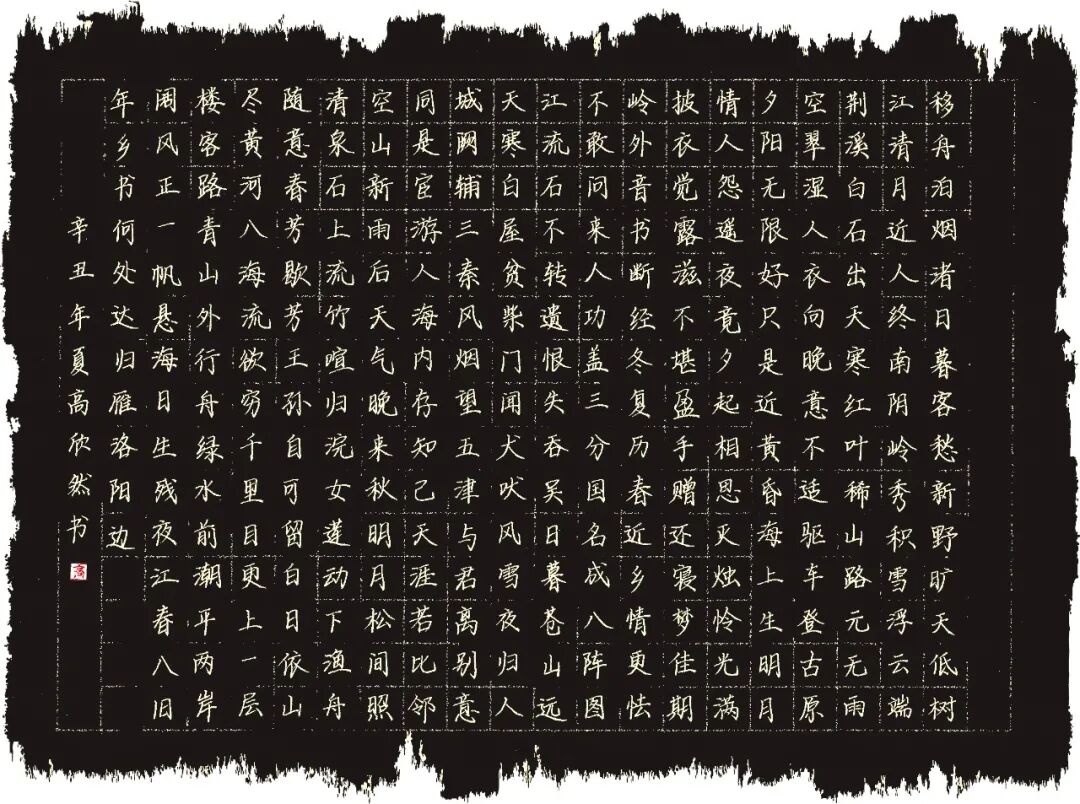 移舟泊烟渚日暮客愁新野旷天低树
江清月近人终南阴岭秀积雪浮云端
荆溪白石出天寒红叶稀山路元无雨
空翠湿人衣向晚意不适驱车登古原
夕阳无限好只是近黄昏海上生明月
情人怨遥夜竟夕起相思灭烛怜光满
披衣觉露滋不堪盈手赠还寝梦佳期
岭外音书断经冬复历春近乡情更怯
不敢问来人功盖三分国名成八阵图
江流石不转遗恨失吞吴日暮苍山远
天寒白屋贫柴门闻犬吠风雪夜归人
城阙辅三秦风烟望五津与君离别意
同是宦游人海内存知己天涯若比邻
空山新雨后天气晚来秋明月松间照
清泉石上流竹喧归浣女莲动下渔舟
随意春芳歇芳王孙自可留白日依山
尽黄河八海流欲穷千里目更上一层
楼客路青山外行舟绿水前潮平两岸
阔风正一帆悬海日生残夜江春八旧
年乡书何处达归雁洛阳边
辛丑年夏高欣然书